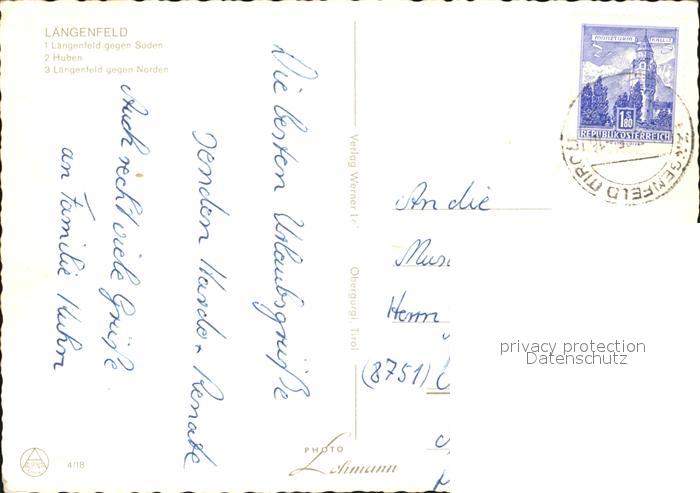 LÄNGENFELD
1 Längenfeld gegen Süden
2 Huben
3 Längenfeld gegen Norden
Die besten Urlaubsgrüße
senden Harda + Renate
Auch recht viele Grüße
an Familie Kuhn
Verlag Werner
Obergurgl, Tirol
An die
Herrn
(8751)
MÜNZTURM HALL
1.80
REPUBLIK ÖSTERREICH
LÄNGENFELD TIROL
privacy protection
Datenschutz
PHOTO
Lohmann
4/18